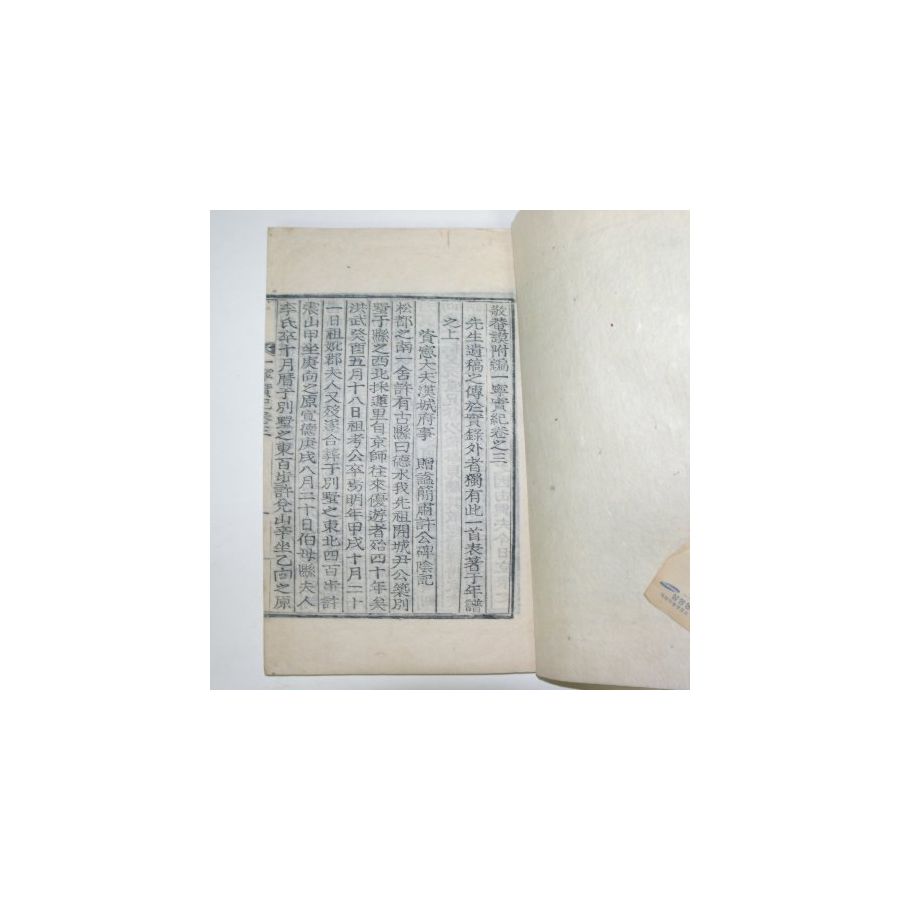 散菴謨附編一寧實紀卷之三
先生遺稿之傳於實錄外者獨有此一首表著于年譜
之上
資憲大夫漢城府事 贈謚簡肅許公碑陰記
松都之南一舍許有古縣曰德水我先祖開城尹公築別
墅于縣之西北採蓮里自京師往來優遊者殆四十年矣
洪武癸酉五月十八日祖考公卒焉明年甲戌十月二十
一日祖妣郡夫人又歿遂合葬于別墅之東北四百步許
震山甲坐庚向之原宣德庚戌八月二十日伯母縣夫人
李氏卒十月曆于別墅之東百步許兌山辛坐乙向之原